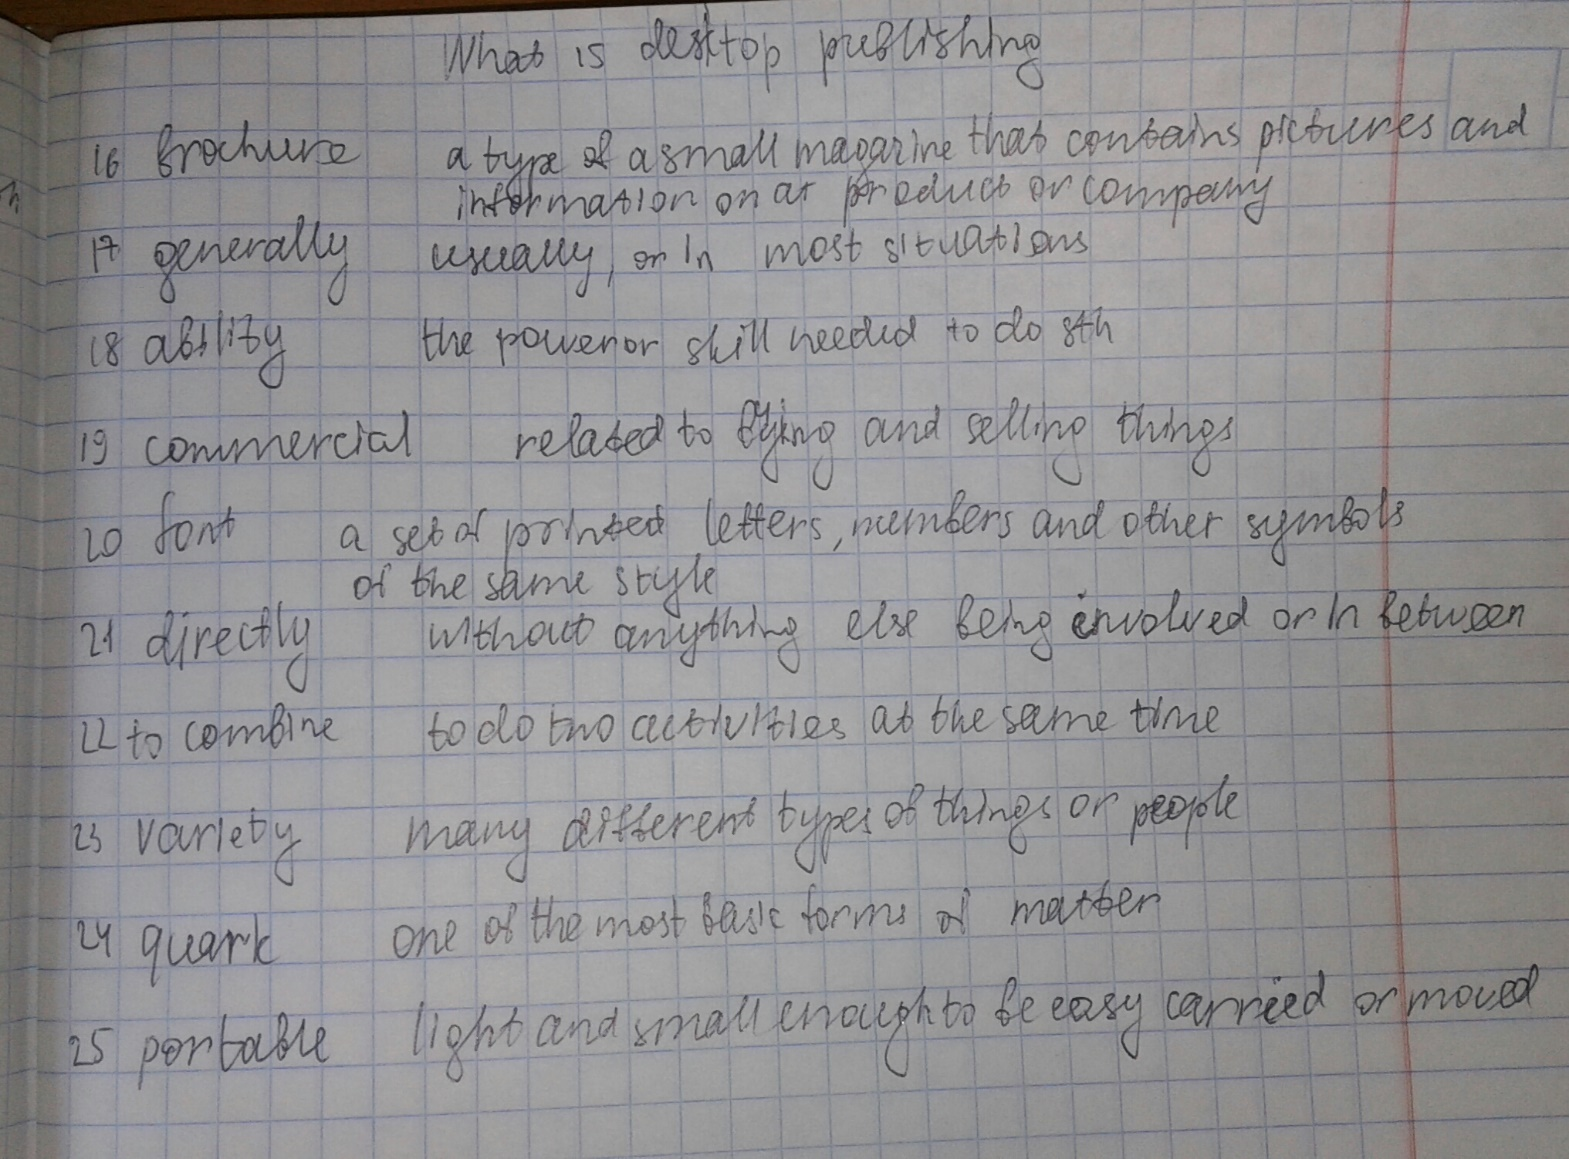 What is desktop publishing
16 brochure a type of a small magazine that contains pictures and
information on a product or company
17 generally usually, or in most situations
18 ability the power or skill needed to do sth
19 commercial related to bying and selling things
20 font a set of printed letters, numbers and other symbols
of the same style
21 directly without anything else being involved or in between
22 to combine to do two activities at the same time
23 variety many different types of things or people
24 quark one of the most basic forms of matter
25 portable light and small enough to be easy carried or moved